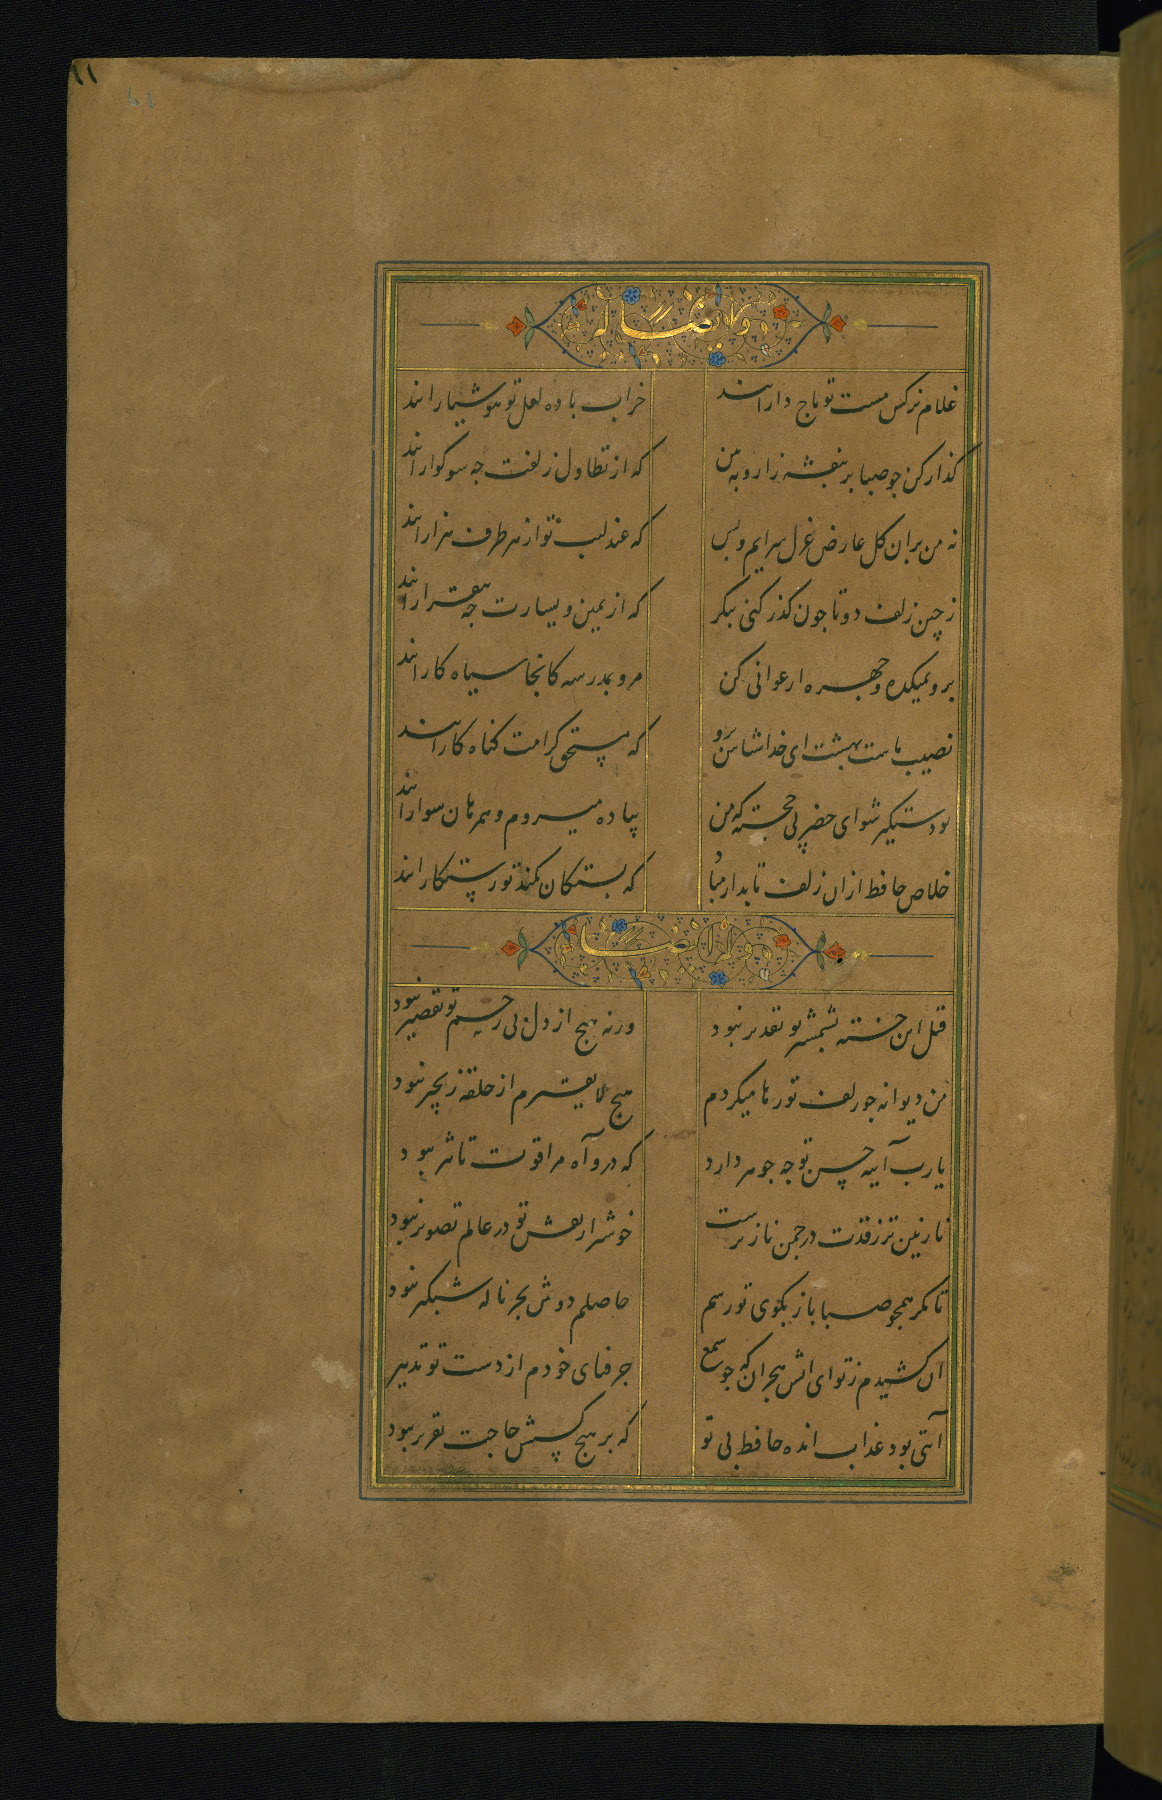 ۶۱
وله ایضا
غلام نرکس مست تو تاج دارانند خراب باده لعل تو هوشیارانند
کذار کن جو صبا بر بنفشه زار و ببین که از تطاول زلفت جه سوکوارانند
نه من بران کل عارض غزل سرایم و بس که عندلیب تو از هر طرف هزارانند
ز چین زلف دوتا جون کذر کنی بنکر که از یمین و یسارت جه بیقرارانند
برو بمیکده و جهره ارغوانی کن مرو بمدرسه کانجا سیاه کارانند
نصیب ماست بهشت ای خداشناس برو که مستحق کرامت کناه کارانند
تو دستکیر شو ای خضر پی خجسته که من پیاده میروم و همرهان سوارانند
خلاص حافظ ازان زلف تابدار مباد که بستکان کمند تو رستکارانند
وله ایضا
قتل این خسته بشمشیر تو تقدیر نبود ورنه هیج از دل بی رحم تو تقصیر نبود
من دیوانه جو زلف تو رها میکردم هیج لایقترم از حلقه زنجیر نبود
یارب آینه حسن تو جه جوهر دارد که درو آه مرا قوت تاثیر نبود
نازنین تر ز قدت در جمن ناز نرست خوشتر از نقش تو در عالم تصویر نبود
تا مکر همجو صبا باز بکوی تو رسم حاصلم دوش بجز ناله شبکیر نبود
آن کشیدم ز تو ای اتش هجران که جو شمع جز فنای خودم از دست تو تدبیر
آیتی بود عذاب انده حافظ بی تو که بر هیج کسش حاجت تقریر نبود